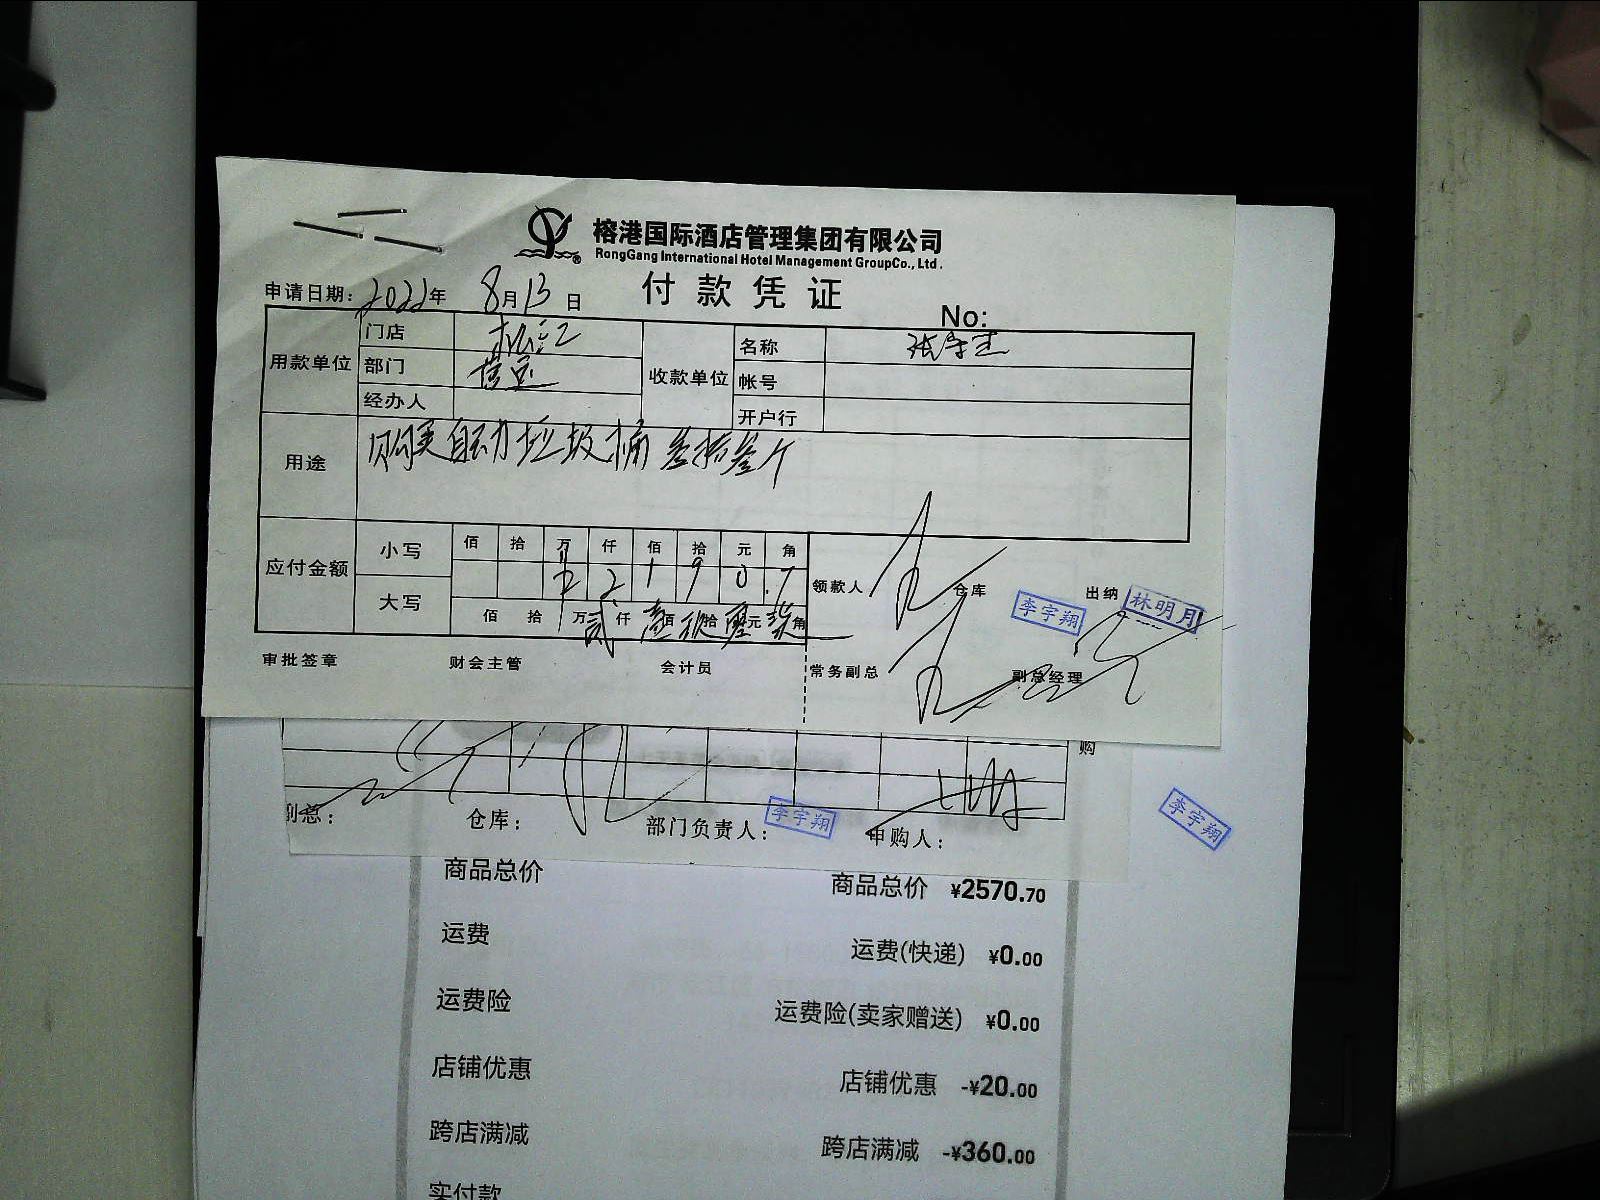 榕港国际酒店管理集团有限公司
RongGang International Hotel Management GroupCo., Ltd.
付款凭证
申请日期: 2022年 8月13日
No:
用款单位 门店 松江 收款单位 名称
部门 营运 帐号
经办人 开户行
用途 购买自动垃圾桶叁拾叁个
应付金额 小写 佰 拾 万 仟 佰 拾 元 角
2 1 9 0.7
大写 佰 拾 万 贰 仟 壹 佰 玖 拾 零 元 柒 角
领款人 仓库 李宇翔 出纳 林明月
审批签章 财会主管 会计员 常务副总 副总经理
购
副总: 仓库: 部门负责人: 李宇翔 申购人:
李宇翔
商品总价 商品总价 ¥2570.70
运费 运费(快递) ¥0.00
运费险 运费险(卖家赠送) ¥0.00
店铺优惠 店铺优惠 -¥20.00
跨店满减 跨店满减 -¥360.00
实付款